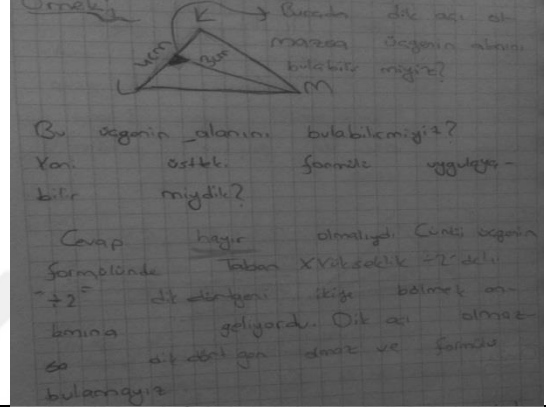 Örnek:
K → Burada dik açı ol
4cm
mazsa üçgenin alanını
bulabilir miyiz?
L M
Bu üçgenin alanını bulabilirmiyiz?
Yani üstteki formülü uygulaya-
bilir miydik?
Cevap hayır olmalıydı. Çünkü üçgenin
formülünde Taban X Yükseklik ÷2 deki
"÷2" dik dörtgeni ikiye bölmek an-
lamına geliyordu. Dik açı olmaz-
sa dik dörtgen olmaz ve formülü
bulamayız